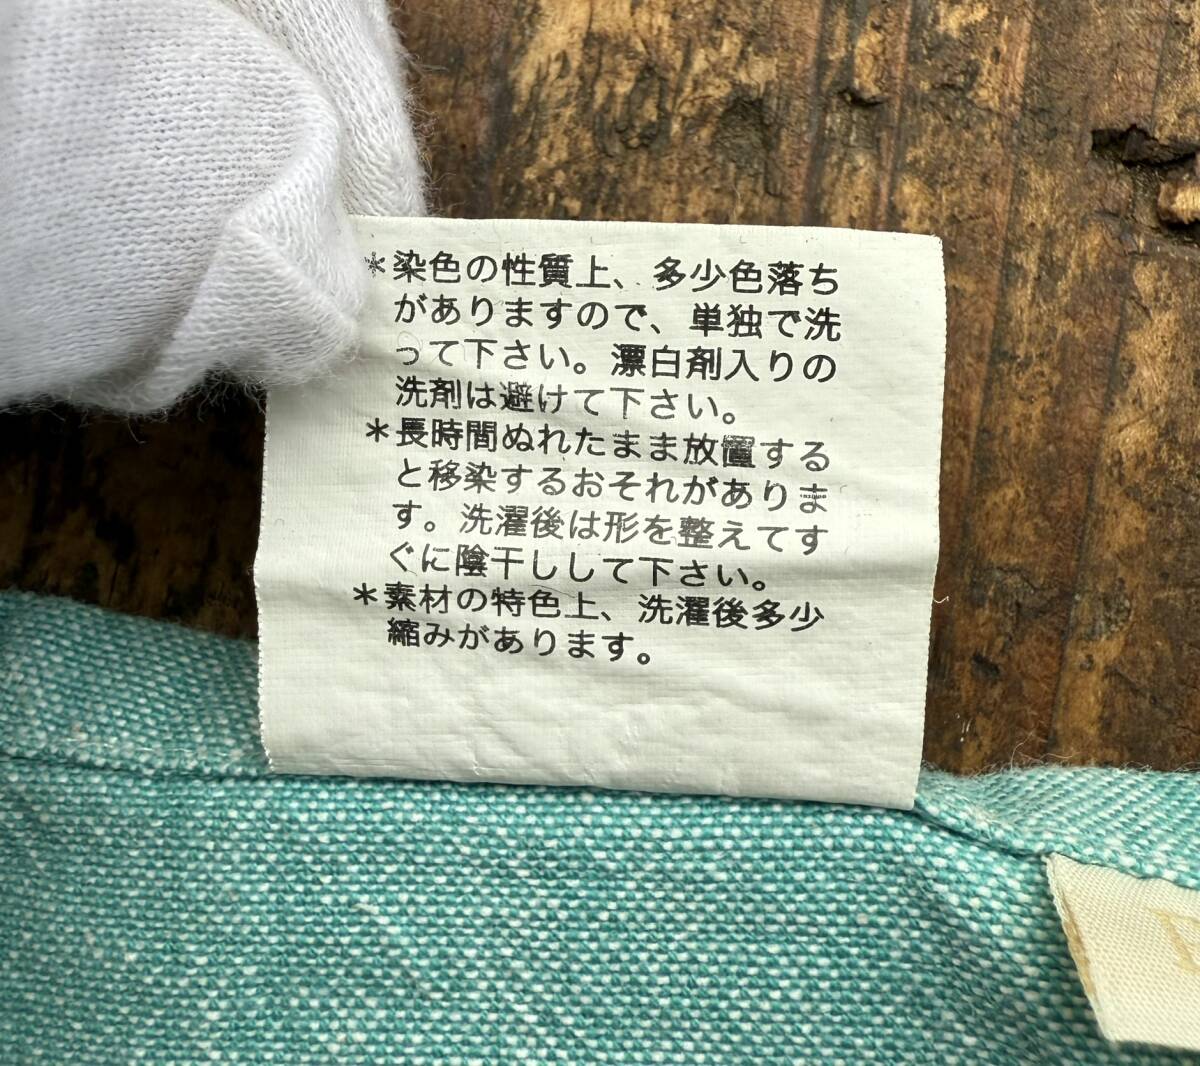 ＊染色の性質上、多少色落ち
がありますので、単独で洗
って下さい。漂白剤入りの
洗剤は避けて下さい。
＊長時間ぬれたまま放置する
と移染するおそれがありま
す。洗濯後は形を整えてす
ぐに陰干しして下さい。
＊素材の特色上、洗濯後多少
縮みがあります。